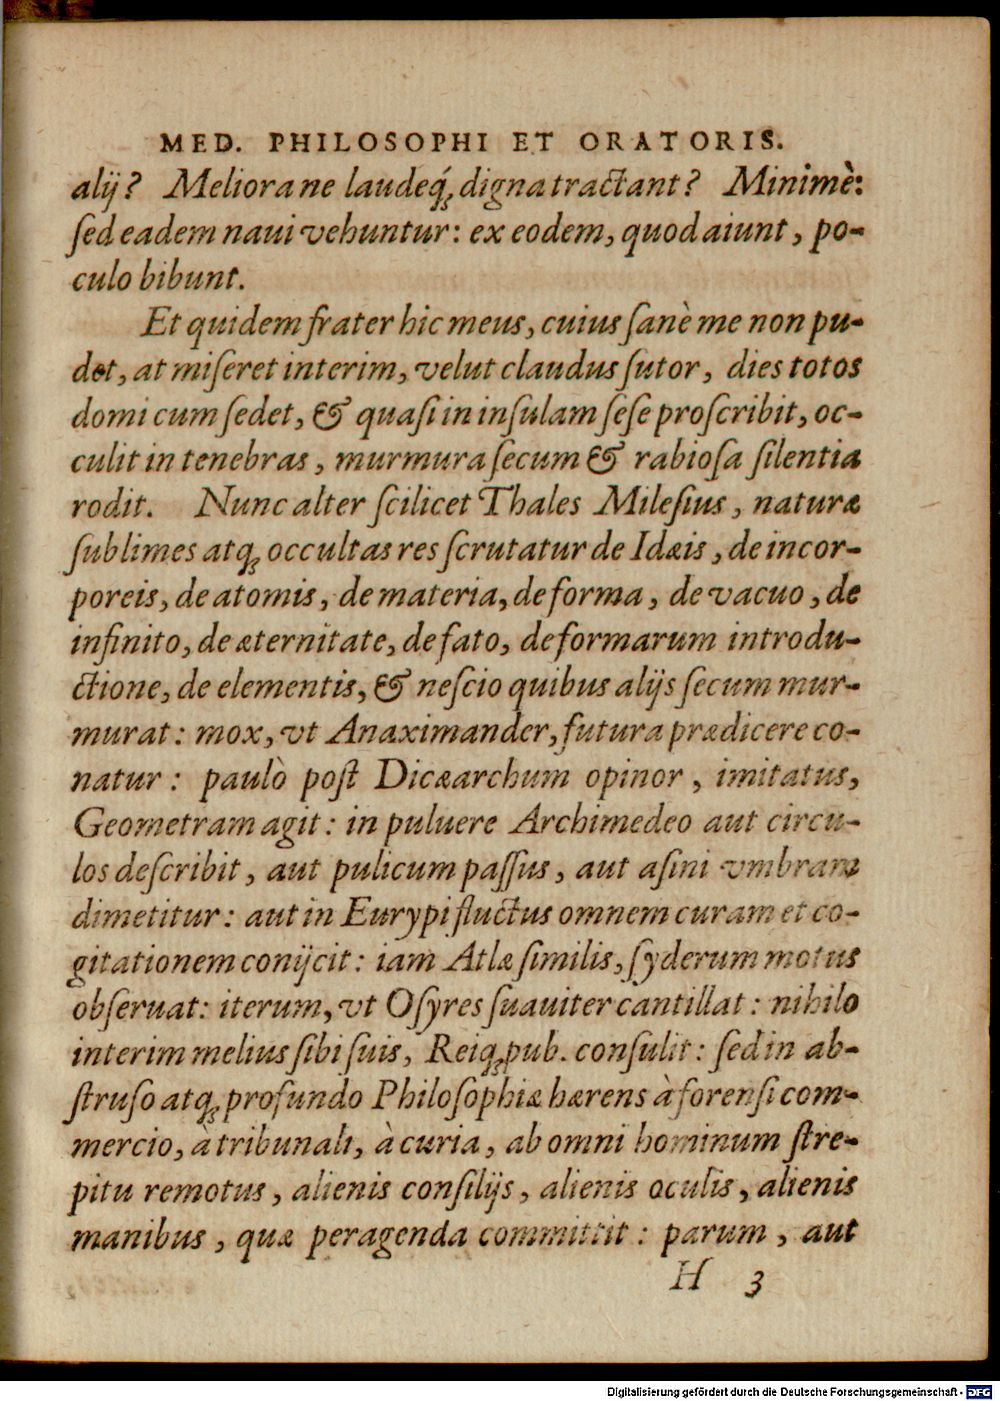 MED. PHILOSOPHI ET ORATORIS.
alij? Meliora ne laudeq́ꝫ digna tractant? Minimè:
ſed eadem naui vehuntur: ex eodem, quod aiunt, po-
culo bibunt.
Et quidem frater hic meus, cuius ſanè me non pu-
det, at miſeret interim, velut claudus ſutor, dies totos
domi cum ſedet, & quaſi in inſulam ſeſe proſcribit, oc-
culit in tenebras, murmura ſecum & rabioſa ſilentia
rodit. Nunc alter ſcilicet Thales Mileſius, naturæ
ſublimes atqꝫ occultas res ſcrutatur de Idæis, de incor-
poreis, de atomis, de materia, de forma, de vacuo, de
infinito, de æternitate, de fato, de formarum introdu-
ctione, de elementis, & neſcio quibus alijs ſecum mur-
murat: mox, vt Anaximander, futura prædicere co-
natur: paulò poſt Dicæarchum opinor, imitatus,
Geometram agit: in puluere Archimedeo aut circu-
los deſcribit, aut pulicum paſſus, aut aſini vmbram
dimetitur: aut in Eurypi fluctus omnem curam et co-
gitationem conijcit: iam Atlæ ſimilis, ſyderum motus
obſeruat: iterum, vt Oſyres ſuauiter cantillat: nihilo
interim melius ſibi ſuis, Reiqꝫ pub. conſulit: ſed in ab-
ſtruſo atqꝫ profundo Philoſophiæ hærens à forenſi com-
mercio, à tribunali, à curia, ab omni hominum ſtre-
pitu remotus, alienis conſilijs, alienis oculis, alienis
manibus, quæ peragenda committit: parum, aut
H 3
Digitalisierung gefördert durch die Deutsche Forschungsgemeinschaft - DFG